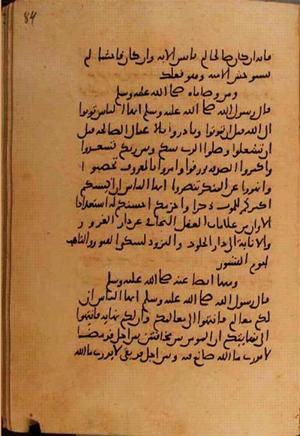 84
فانه ان كان صالحا لم يانس الا به وان كان فاحشا لم
يستوحش الا منه وهو فعلك
ومن وصاياه صلى الله عليه وسلم
قال رسول الله صلى الله عليه وسلم ايها الناس توبوا
الى الله قبل ان تموتوا وبادروا بالاعمال الصالحة قبل
ان تشغلوا وصلوا الذي بينكم وبين ربكم تسعدوا
واكثروا الصدقة ترزقوا وامروا بالمعروف تخصبوا
وانتهوا عن المنكر تنصروا ايها الناس ان اكيسكم
اكثركم للموت ذكرا واحزمكم احسنكم له استعدادا
الا وان من علامات العقل التجافي عن دار الغرور
والانابة الى دار الخلود والتزود لسكنى القبور والتاهب
ليوم النشور
ومما ايضا عنه صلى الله عليه وسلم
قال رسول الله صلى الله عليه وسلم ايها الناس ان
لكم معالم فانتهوا الى معالمكم وان لكم نهاية فانتهوا
الى نهايتكم ان المومن بين مخافتين بين اجل قد مضى
لا يدري ما الله صانع فيه وبين اجل قد بقي لا يدري ما الله